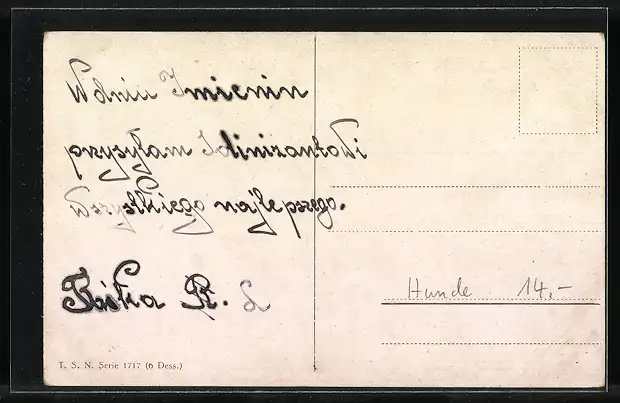 W dniu Imienin
przysyłam Solinizantowi
Wszystkiego najlepszego.
Baśka R.
Hunde 14.-
T. S. N. Serie 1717 (6 Dess.)